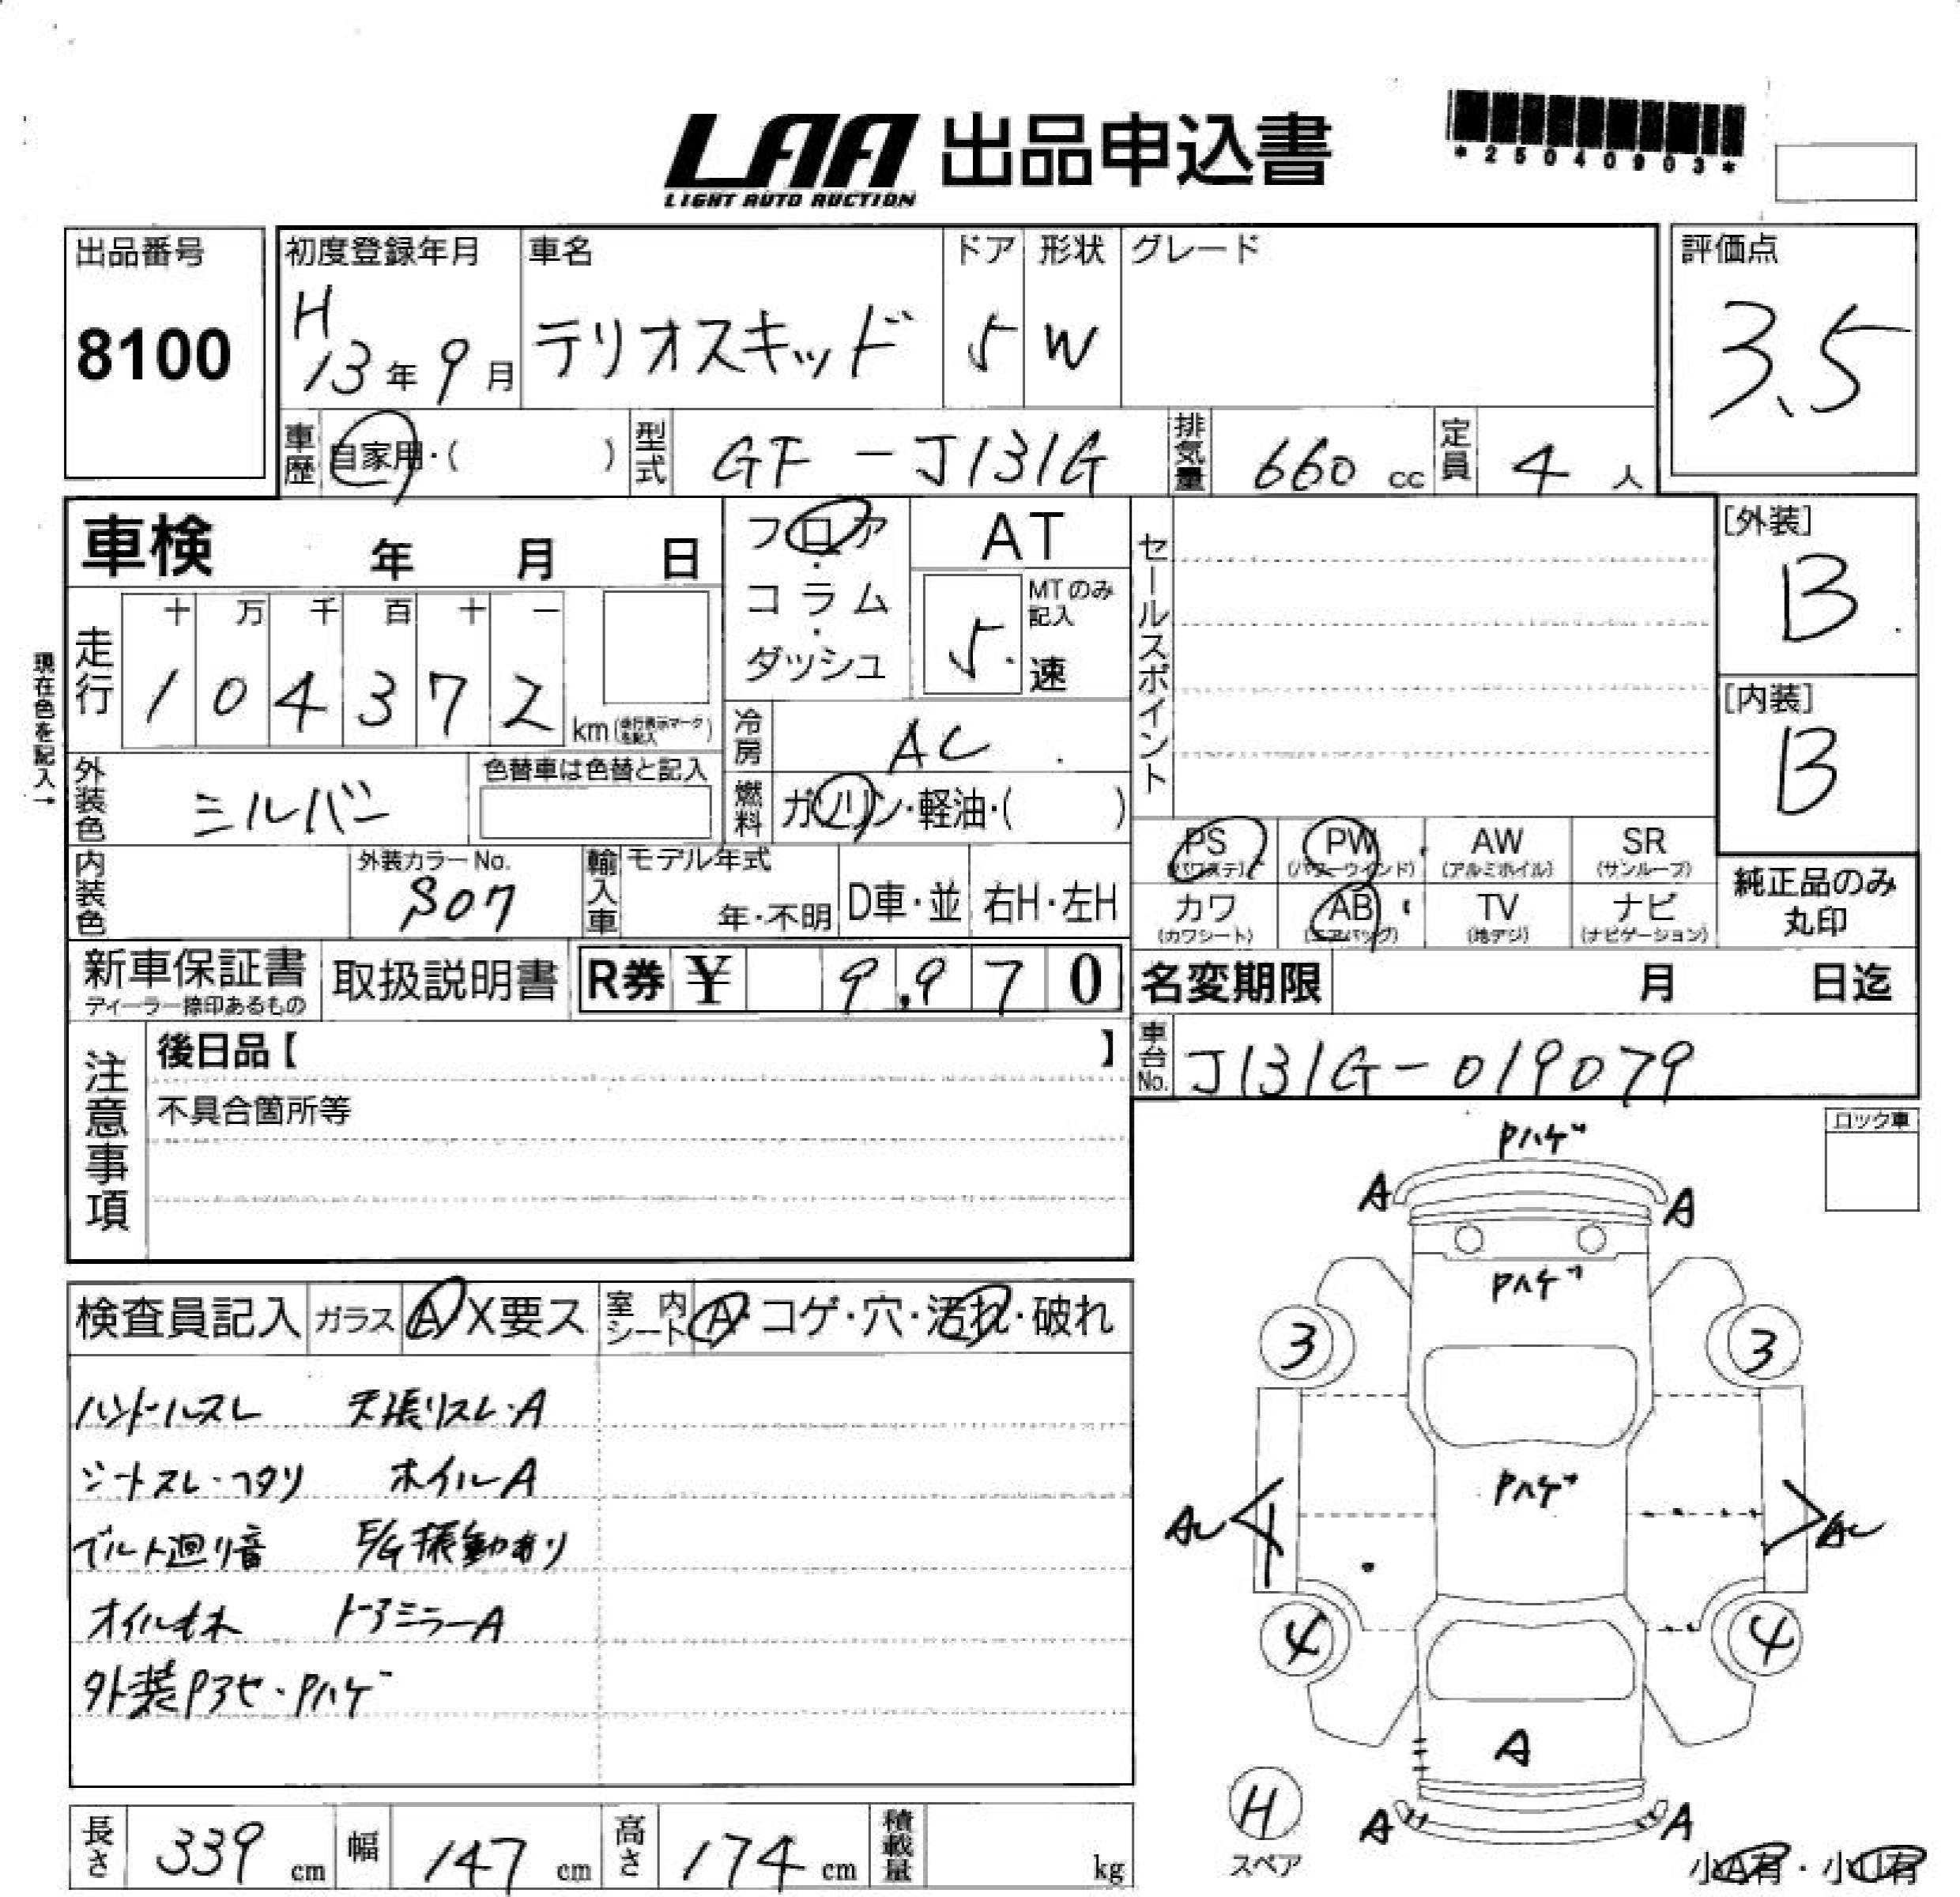 LAA 出品申込書
LIGHT AUTO AUCTION
*25040903*
出品番号
8100
初度登録年月
H
13年9月
車名
テリオスキッド
ドア
5
形状
W
グレード
評価点
3.5
車歴
自家用・( )
型式
GF-J131G
排気量
660 cc
定員
4 人
車検 年 月 日
フロア・コラム・ダッシュ
AT
MTのみ記入
5 速
セールスポイント
[外装]
B
[内装]
B
現在色を記入→
走行
十 万 千 百 十 一
1 0 4 3 7 2 km
(走行表示マークを記入)
冷房
AC
外装色
シルバー
色替車は色替と記入
燃料
ガソリン・軽油・( )
PS (パワステ)
PW (パワーウインド)
AW (アルミホイル)
SR (サンルーフ)
カワ (カワシート)
AB (エアバッグ)
TV (地デジ)
ナビ (ナビゲーション)
純正品のみ丸印
内装色
外装カラーNo.
S07
輸入車
モデル年式
年・不明
D車・並
右H・左H
新車保証書
ディーラー捺印あるもの
取扱説明書
R券 ¥ 9,970
名変期限 月 日迄
車台No.
J131G-019079
注意事項
後日品【 】
不具合箇所等
ロック車
検査員記入
ガラス
A X要ス
室内シート
A・コゲ・穴・汚れ・破れ
ハンドルスレ 天張リスレ・A
シートスレ・ヘタリ ホイルA
ベルト廻り音 E/G振動有り
ドアミラーA
外装Pアセ・Pハゲ
Pハゲ
A A
Pハゲ
3 3
Pハゲ
4 4
A
A A
H
スペア
小A有・小U有
長さ
339 cm
幅
147 cm
高さ
174 cm
積載量
kg